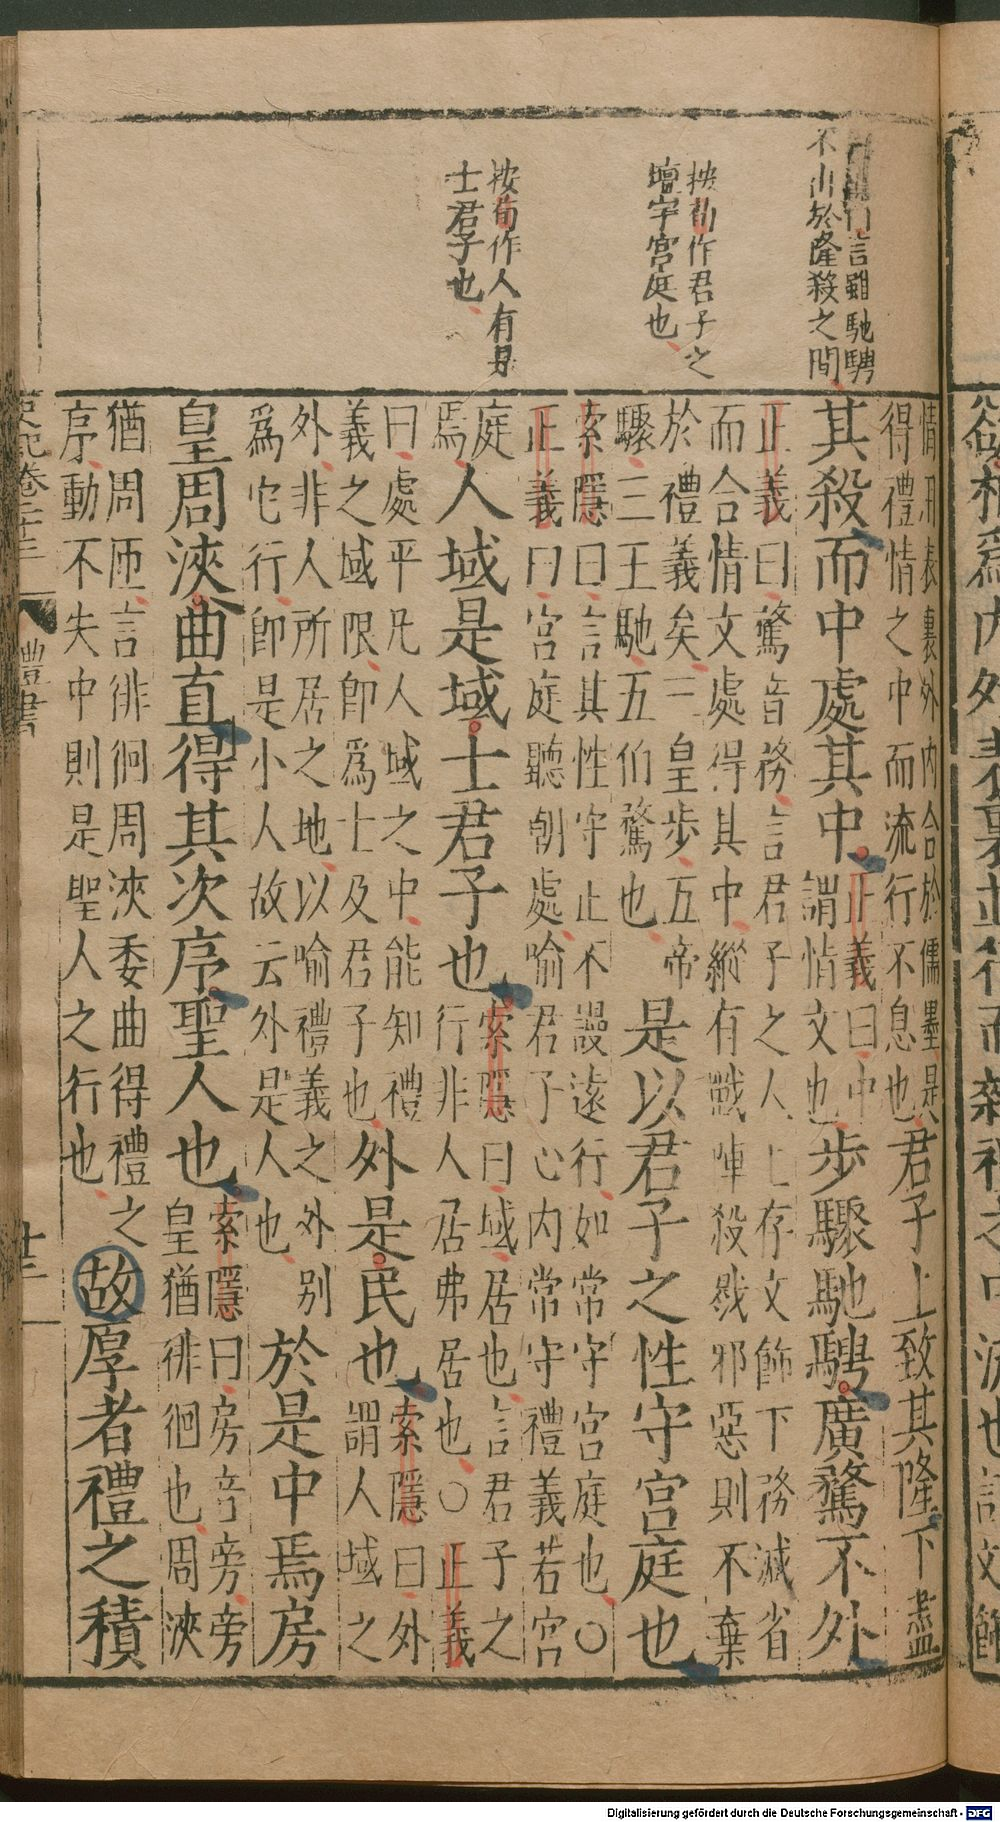 相爲内外表裏並行而雜
言雖馳騁
不出於隆殺之間
按荀作君子之
壇宇宮庭也
按荀作人有是
士君子也
情用表裏外内合於儒墨是
得禮情之中而流行不息也
君子上致其隆下盡
其殺而中處其中
正義曰中
謂情文也
步驟馳騁廣騖不外
正義曰騖音務言君子之人上存文飾下務減省
而合情文處得其中縱有戰陣殺戮邪惡則不棄
於禮義矣三皇步五帝
驟三王馳五伯騖也
是以君子之性守宮庭也
索隱曰言其性守止不謾遠行如常守宮庭也○
正義曰宮庭聽朝處喻君子心内常守禮義若宮
庭
焉
人域是域士君子也
索隱曰域居也言君子之
行非人居弗居也○正義
曰處平凡人域之中能知禮
義之域限即爲士及君子也
外是民也
索隱曰外
謂人域之
外非人所居之地以喻禮義之外别
爲它行即是小人故云外是人也
於是中焉房
皇周浹曲直得其次序聖人也
索隱曰房音旁旁
皇猶徘徊也周浹
猶周匝言徘徊周浹委曲得禮之
序動不失中則是聖人之行也
故厚者禮之積
史記卷二十三 禮書
Digitalisierung gefördert durch die Deutsche Forschungsgemeinschaft - DFG